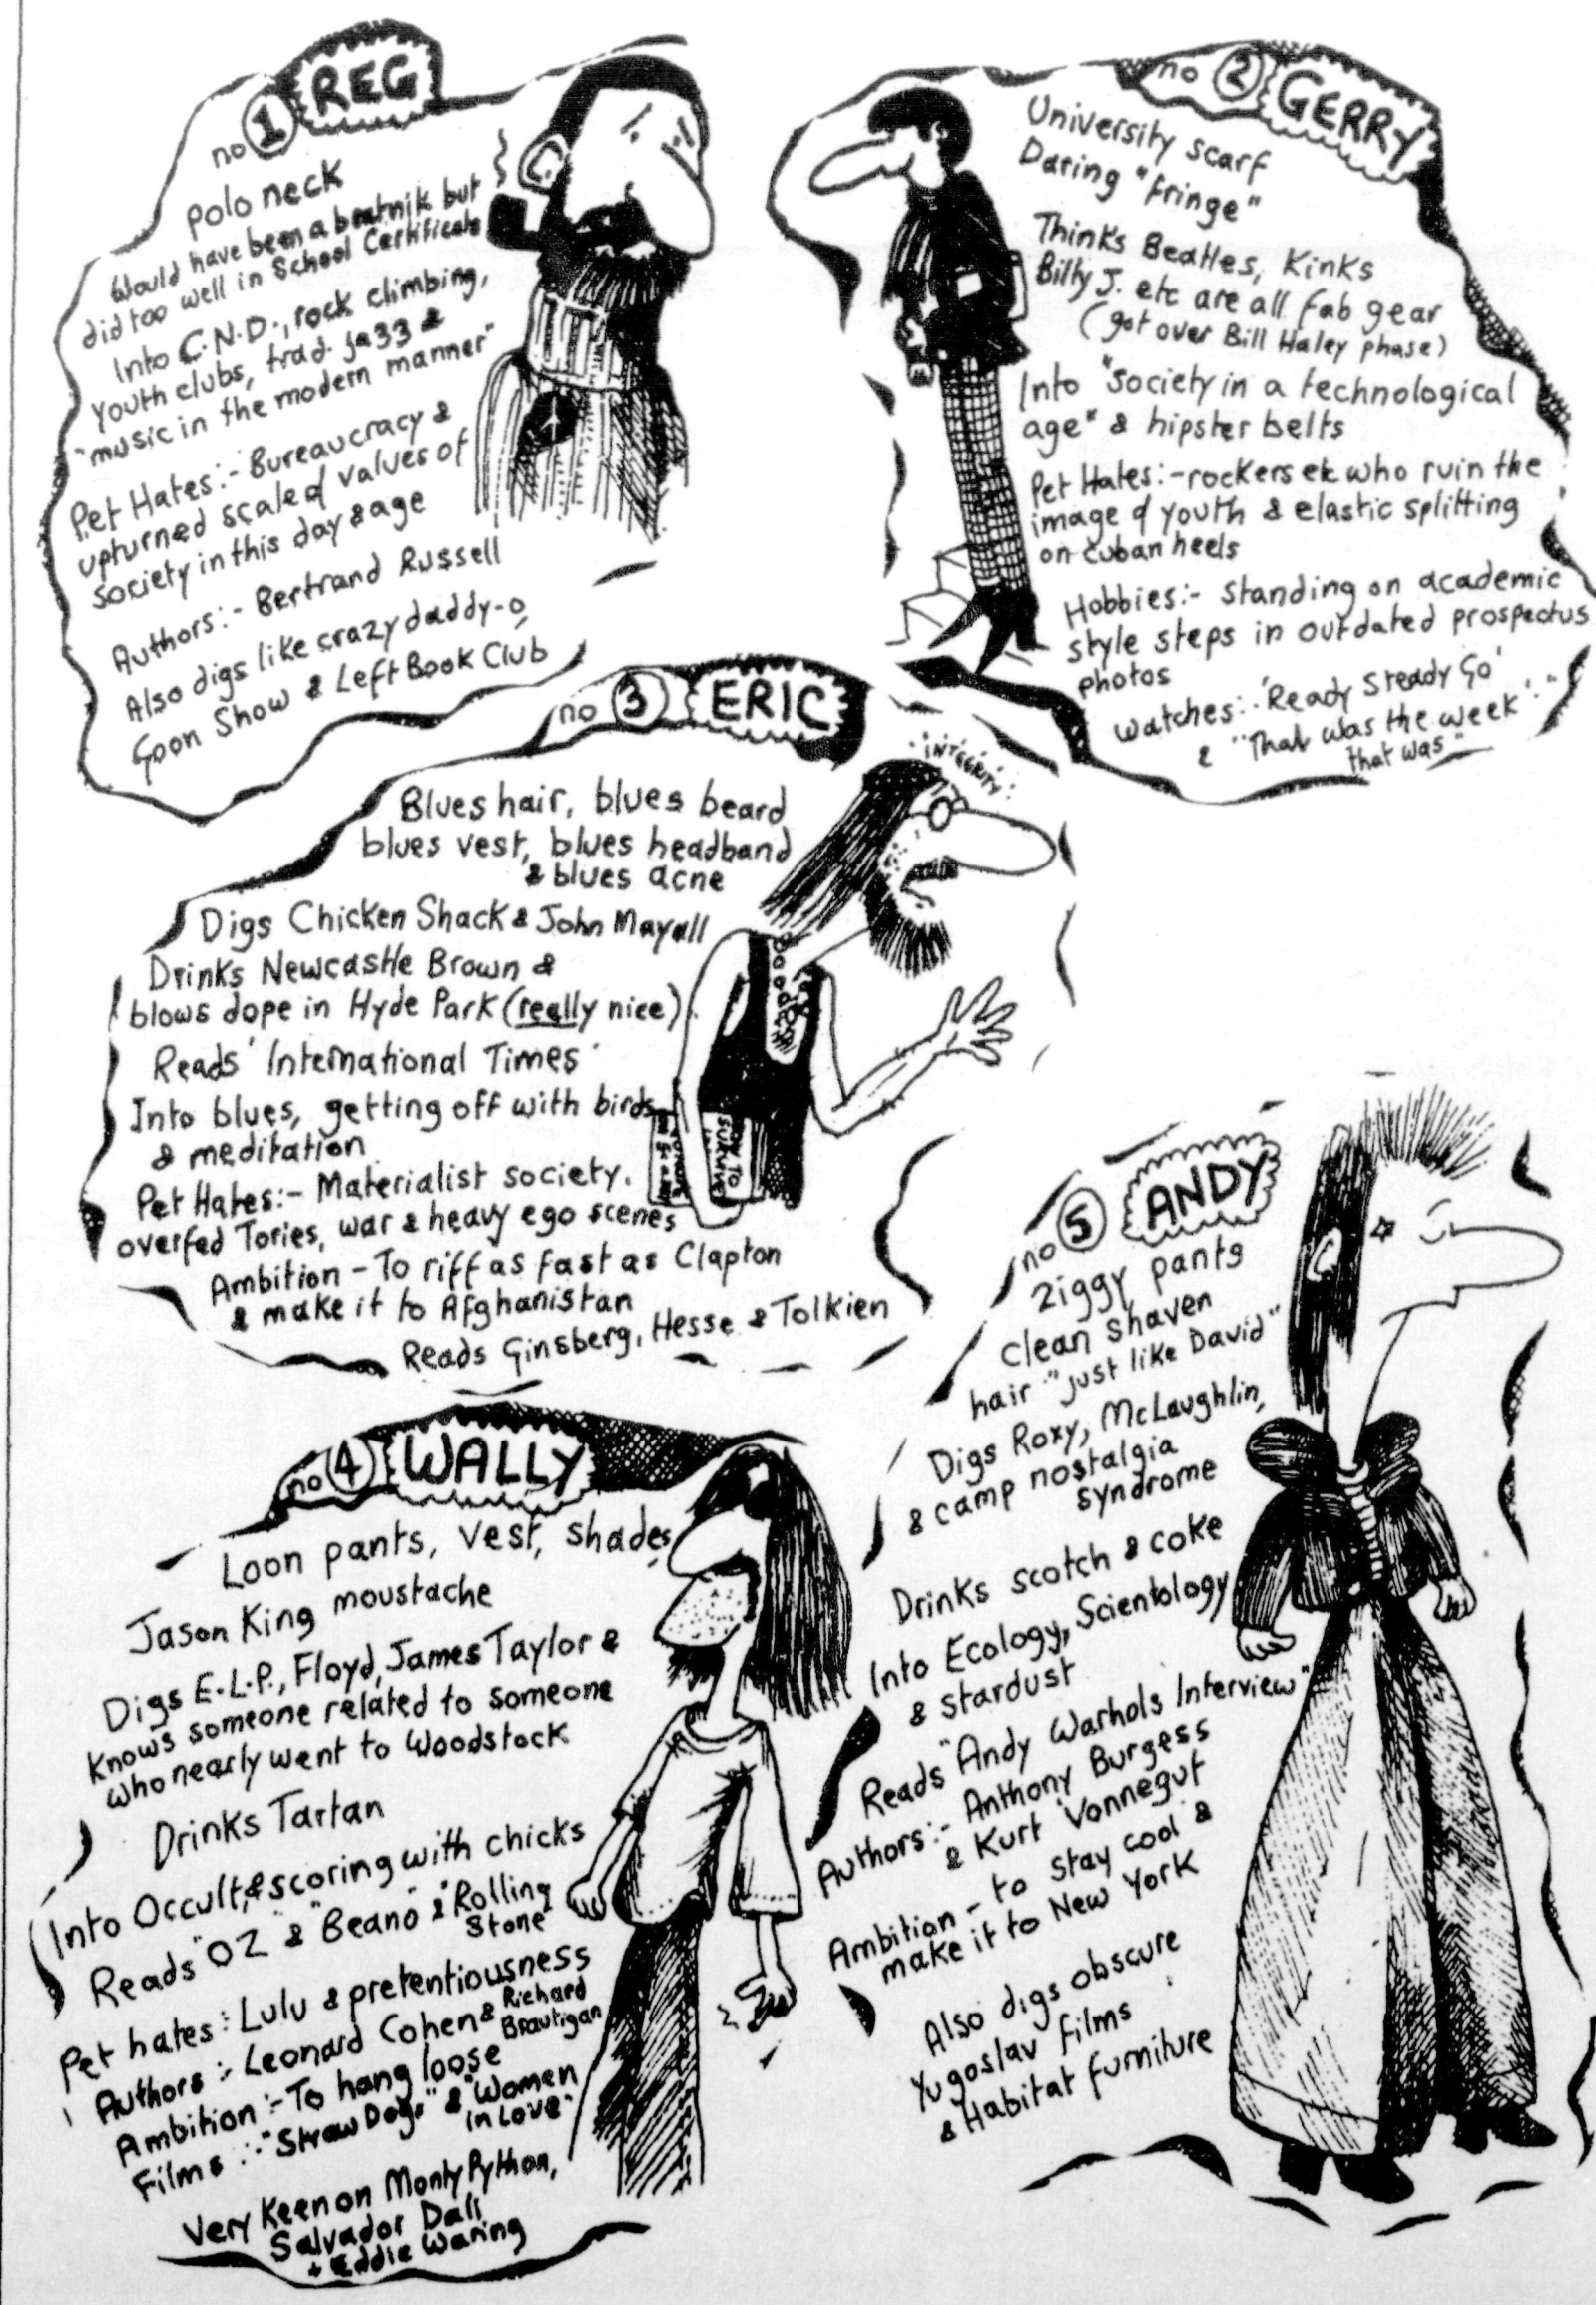 no 1 REG
polo neck
Would have been a beatnik but
did too well in School Certificate
Into C.N.D., rock climbing,
youth clubs, trad. jazz &
"music in the modern manner"
Pet Hates:- Bureaucracy &
upturned scaled values of
society in this day & age
Authors:- Bertrand Russell
Also digs like crazy daddy-o,
Goon Show & Left Book Club
no 2 GERRY
University scarf
Daring "fringe"
Thinks Beatles, Kinks
Billy J. etc are all fab gear
(got over Bill Haley phase)
Into "society in a technological
age" & hipster belts
Pet Hates:- rockers etc who ruin the
image of youth & elastic splitting
on cuban heels
Hobbies:- Standing on academic
style steps in outdated prospectus
photos
Watches:- 'Ready Steady Go'
& "That was the week
that was"
no 3 ERIC
INTEGRITY
Blues hair, blues beard
blues vest, blues headband
& blues acne
Digs Chicken Shack & John Mayall
Drinks Newcastle Brown &
blows dope in Hyde Park (really nice)
Reads 'International Times'
Into blues, getting off with birds
& meditation
Pet Hates:- Materialist society,
overfed Tories, war & heavy ego scenes
Ambition - To riff as fast as Clapton
& make it to Afghanistan
Reads Ginsberg, Hesse & Tolkien
TO
SURVIVE
no 4 WALLY
Loon pants, vest, shades,
Jason King moustache
Digs E.L.P., Floyd, James Taylor &
knows someone related to someone
who nearly went to Woodstock
Drinks Tartan
Into Occult, & scoring with chicks
Reads "OZ" & "Beano" & "Rolling
Stone"
Pet hates: Lulu & pretentiousness
Authors:- Leonard Cohen & Richard
Brautigan
Ambition:- To hang loose
Films:- "Straw Dogs" & "Women
in Love"
Very Keen on Monty Python,
Salvador Dali
+ Eddie Waring
no 5 ANDY
Ziggy pants
clean shaven
hair "just like David"
Digs Roxy, McLaughlin,
& camp nostalgia
syndrome
Drinks scotch & coke
Into Ecology, Scientology
& stardust
Reads "Andy Warhols Interview"
Authors:- Anthony Burgess
& Kurt Vonnegut
Ambition - to stay cool &
make it to New York
Also digs obscure
Yugoslav films
& Habitat furniture